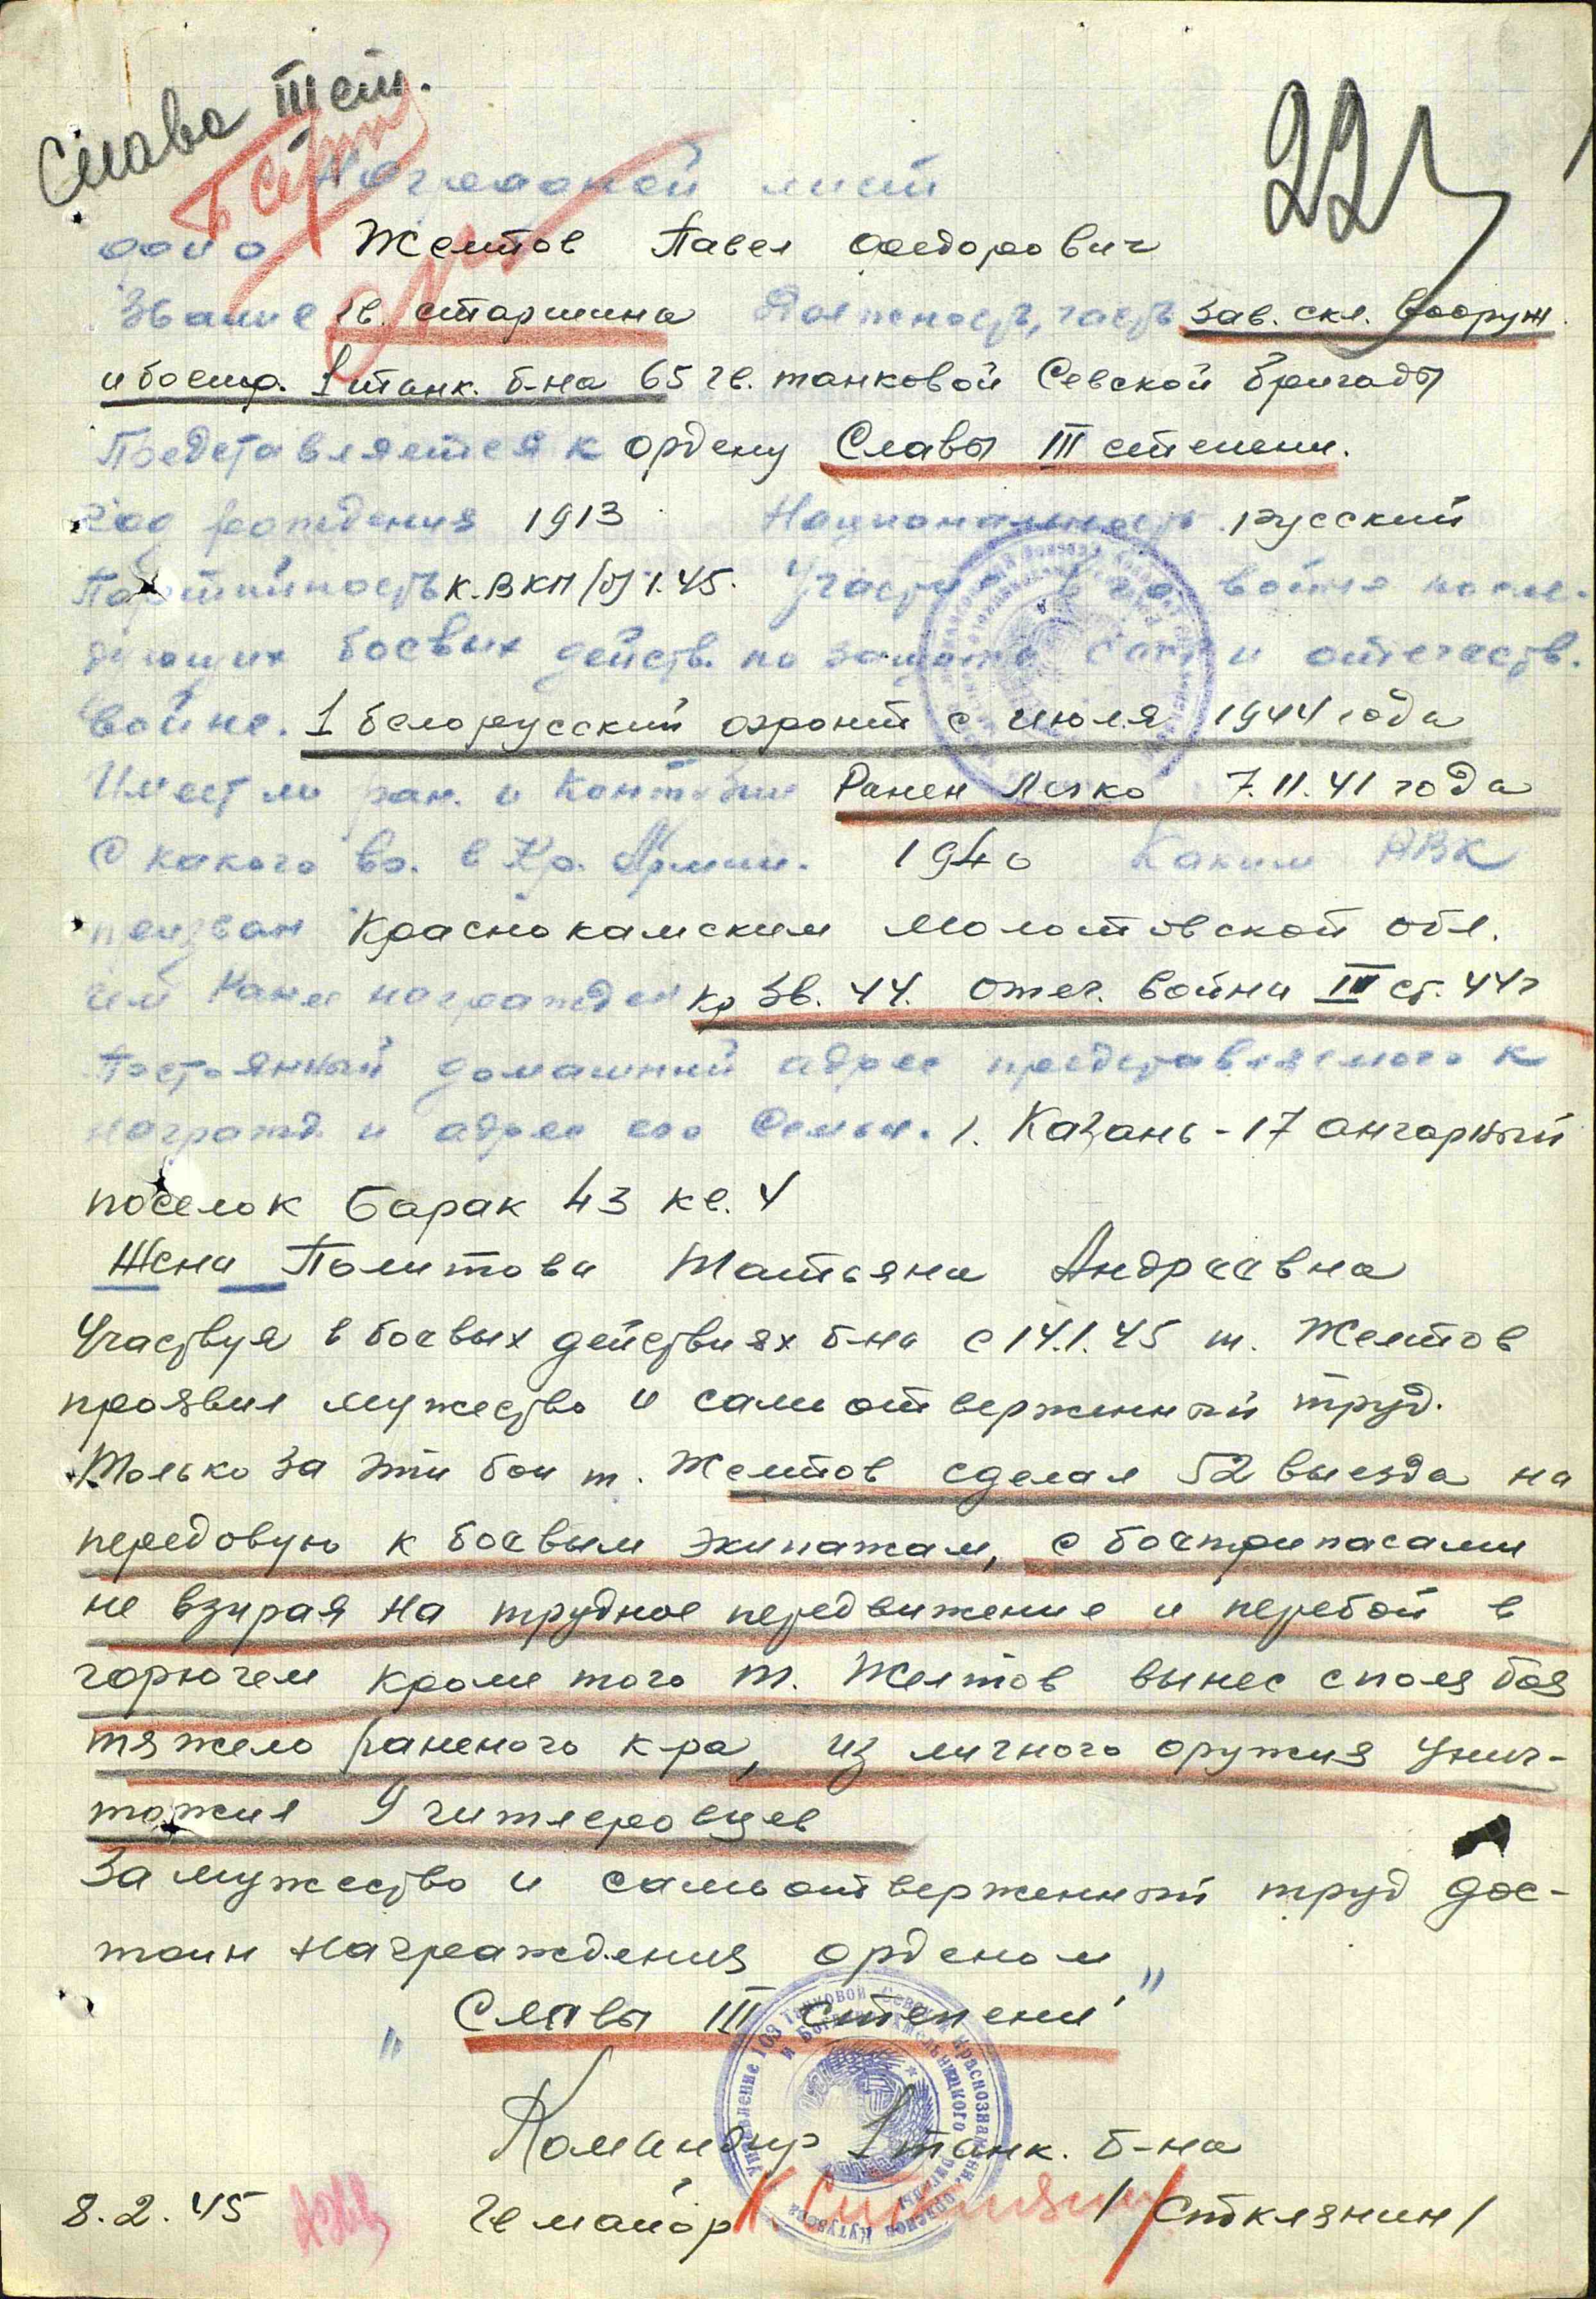 Слава III ст.
223
Наградной лист
ф и о Желтов Павел Федорович
Звание гв. старшина Должность, часть зав. скл. вооруж.
и боепр. 1 танк. б-на 65 гв. танковой Севской бригады
Представляется к ордену Славы III степени.
Год рождения 1913 Национальность русский
Партийность к. ВКП/б/ 1.45. Участие в гр. войне после-
дующих боевых действ. по защите СССР и отечеств.
войне. 1 белорусский фронт с июля 1944 года
Имеет ли ран. и контузии Ранен легко 7.11.41 года
С какого вр. в Кр. Армии. 1940 Каким РВК
призван Краснокамским Молотовской обл.
чем ранее награжден Кр Зв. 44. Отеч. войны II ст. 44 г
Постоянный домашний адрес представляемого к
награжд. и адрес его семьи. г. Казань-17 ангарный
поселок барак 43 кв. 4
Жена Политова Татьяна Андреевна
Участвуя в боевых действиях б-на с 14.1.45 т. Желтов
проявил мужество и самоотверженный труд.
Только за эти бои т. Желтов сделал 52 выезда на
передовую к боевым экипажам, с боеприпасами
не взирая на трудное передвижение и перебой в
горючем кроме того т. Желтов вынес с поля боя
тяжело раненого к-ра, из личного оружия унич-
тожил 9 гитлеровцев
За мужество и самоотверженный труд дос-
тоин награждения орденом
„Славы III степени"
Командир 1 танк. б-на
8.2.45 гв майор /Стклянин/